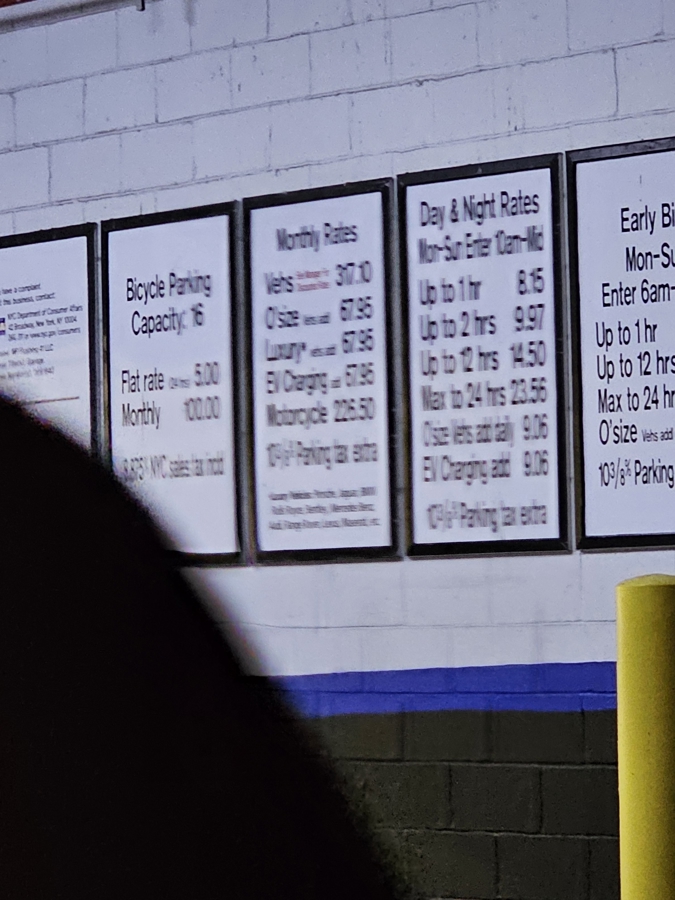 have a complaint
this business, contact:
NYC Department of Consumer Affairs
42 Broadway, New York, NY 10004
Bicycle Parking
Capacity: 16
Flat rate 5.00
Monthly 100.00
NYC sales tax incld
Monthly Rates
Vehs 317.10
O'size Vehs add 67.95
Luxury* vehs add 67.95
EV Charging add 67.95
Motorcycle 226.50
10 3/8 % Parking tax extra
*Luxury Vehicles: Porsche, Jaguar, BMW
Rolls Royce, Bentley, Mercedes Benz,
Audi, Range Rover, Lexus, Maserati, etc.
Day & Night Rates
Mon-Sun Enter 10am-Mid
Up to 1 hr 8.15
Up to 2 hrs 9.97
Up to 12 hrs 14.50
Max to 24 hrs 23.56
O'size Vehs add daily 9.06
EV Charging add 9.06
10 3/8 % Parking tax extra
Early Bi
Mon-Su
Enter 6am-
Up to 1 hr
Up to 12 hrs
Max to 24 hr
O'size Vehs add
10 3/8 % Parking